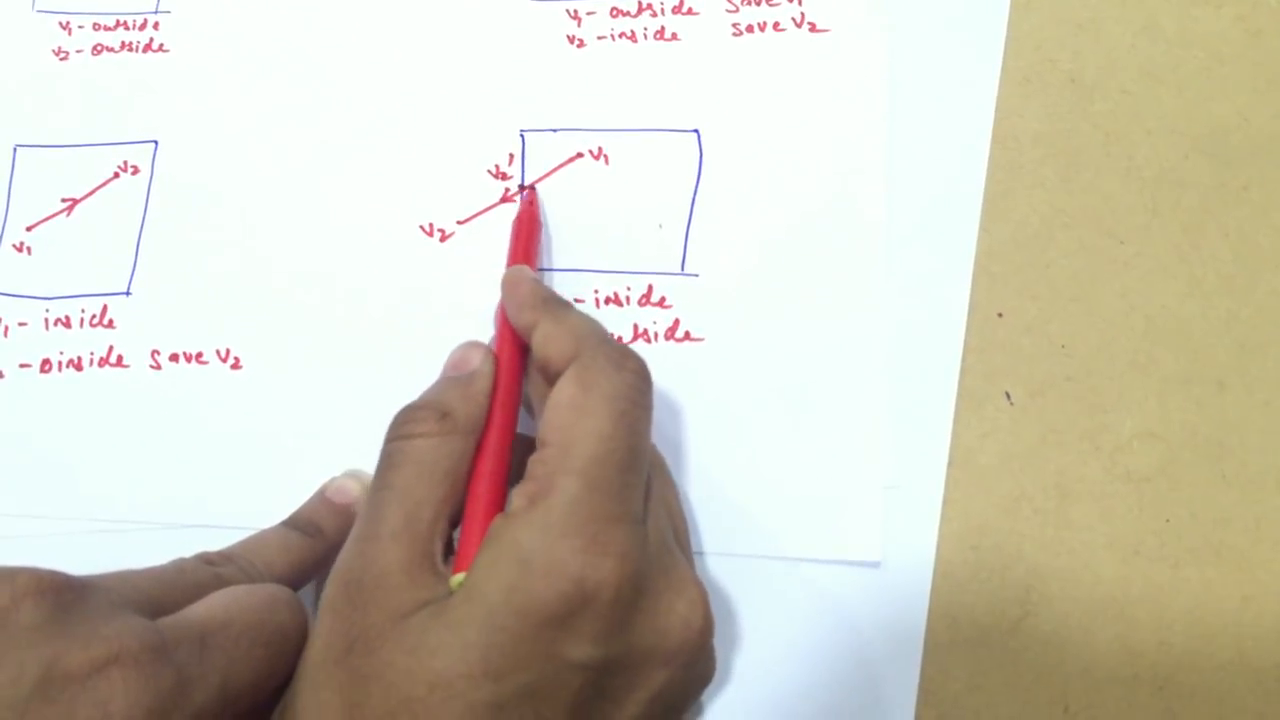 v1 - outside
v2 - outside
v1 - outside save v1'
v2 - inside save v2
v2
v1
v1 - inside
- oinside save v2
v2'
v1
v2
- inside
outside